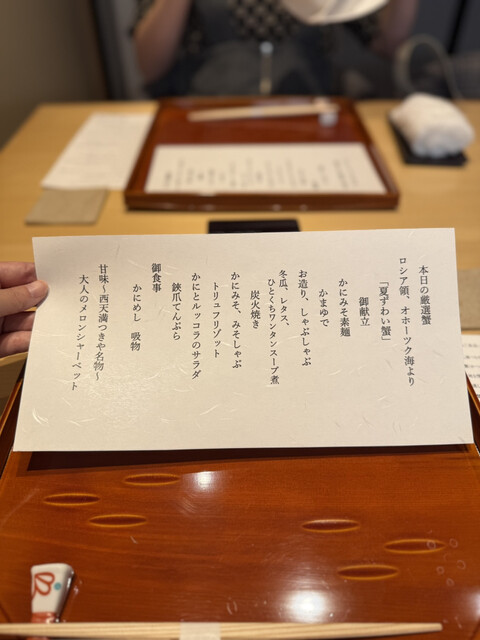 本日の厳選蟹
ロシア領、オホーツク海より
「夏ずわい蟹」
御献立
かにみそ素麺
かまゆで
お造り、しゃぶしゃぶ
冬瓜、レタス、
ひとくちワンタンスープ煮
炭火焼き
かにみそ、みそしゃぶ
トリュフリゾット
かにとルッコラのサラダ
鋏爪てんぷら
御食事
かにめし　吸物
甘味～西天満つきや名物～
大人のメロンシャーベット